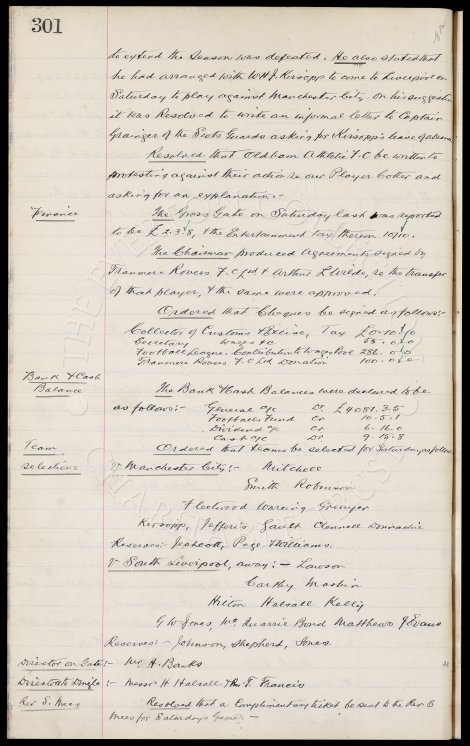 301
to extend the Season was defeated. He also stated that
he had arranged with W H J. Kirsopp to come to Liverpool on
Saturday to play against Manchester City. On his suggestion
it was Resolved to write an informal letter to Captain
Grainger of the Scots Guards asking for Kirsopp's leave of absence
Resolved that Oldham Athletic F.C be written to
protesting against their action re our Player Coker and
asking for an explanation:-
Finance
The Gross Gate on Saturday last was reported
to be £23.8, & the Entertainment Tax thereon 10/10.
The Chairman produced Agreements signed by
Tranmere Rovers F.C Ltd & Arthur L Wilde, re the transfer
of that player, & the same were approved.
Ordered that Cheques be signed as follows:-
Collector of Customs & Excise, Tax £0.10.10
Secretary Wages &c 55.0.0
Football League: Contribution to Wages Pool 286.0.0
Tranmere Rovers F.C Ltd Donation 100.0.0
Bank & Cash
Balance
The Bank & Cash Balances were declared to be
as follows:- General a/c Dr £4081.3.5
Footballers Fund Cr 10.5.1
Dividend a/c Cr 6.16.0
Cash a/c Dr 9.15.8
Team
selections
Ordered that teams be selected for Saturday as follows
v Manchester City:- Mitchell
Smith Robinson
Fleetwood Wareing Grenyer
Kirsopp, Jefferis Gault Clennell Donnachie
Reserves:- Jephcott, Page & Williams.
v South Liverpool, away:- Lawson
Carthy Maskin
Hilton Halsall Kelly
G W Jones, McQuarrie Bond Matthews J Evans
Reserves:- Johnson, Shepherd, Jones.
Director on Gate:- Mr H. Banks
Directors to Dingle:- Messrs H. Halsall & Wm. F. Francis
Rev S. Mees
Resolved that a Complimentary ticket be sent to the Rev S
Mees for Saturday's Game.-